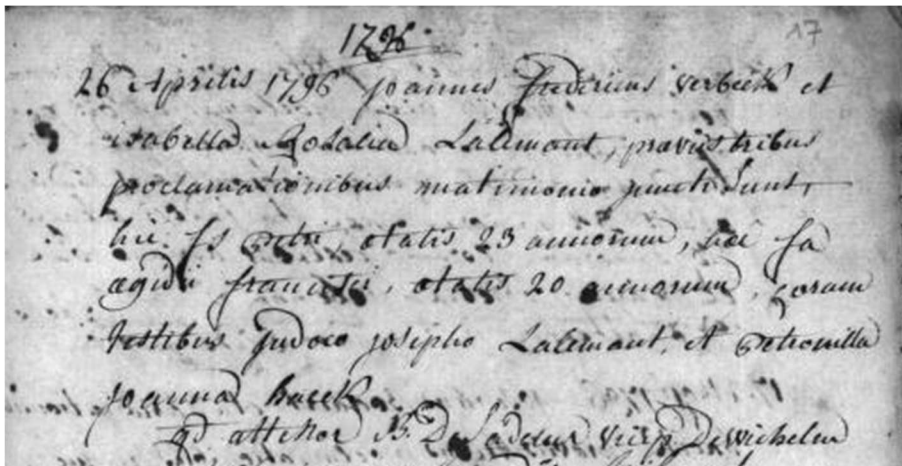 1796.
17
26 Aprilis 1796 joannes fredericus verbeeck et
isabella Rosalia Lalemant, praeviis tribus
proclamationibus matrimonio juncti sunt,
hic fs petri, aetatis 23 annorum, haec fa
egidii francisci, aetatis 20 annorum, coram
testibus judoco josepho Lalemant, et petronilla
joanna haeck
qd attestor vicep. De wichelen